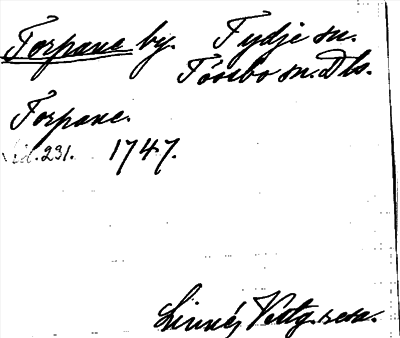 Torpane by. Tydje sn.
Tössbo sn. Dls.
Torpane.
Sid. 231. 1747.
Linnés Västg. resa.